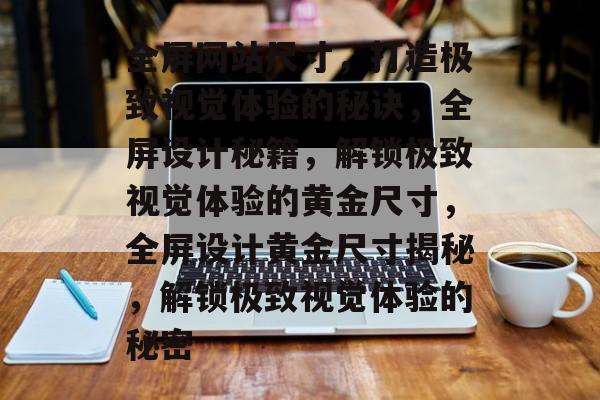 全屏网站尺寸，打造极
致视觉体验的秘诀，全
屏设计秘籍，解锁极致
视觉体验的黄金尺寸，
全屏设计黄金尺寸揭秘
，解锁极致视觉体验的
秘密